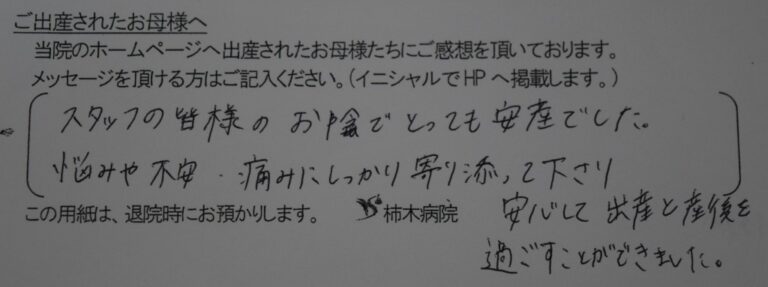 ご出産されたお母様へ
当院のホームページへ出産されたお母様たちにご感想を頂いております。
メッセージを頂ける方はご記入ください。（イニシャルでHPへ掲載します。）
スタッフの皆様のお陰でとっても安産でした。
悩みや不安・痛みにしっかり寄り添って下さり
この用紙は、退院時にお預かりします。 柿木病院
安心して出産と産後を
過ごすことができました。